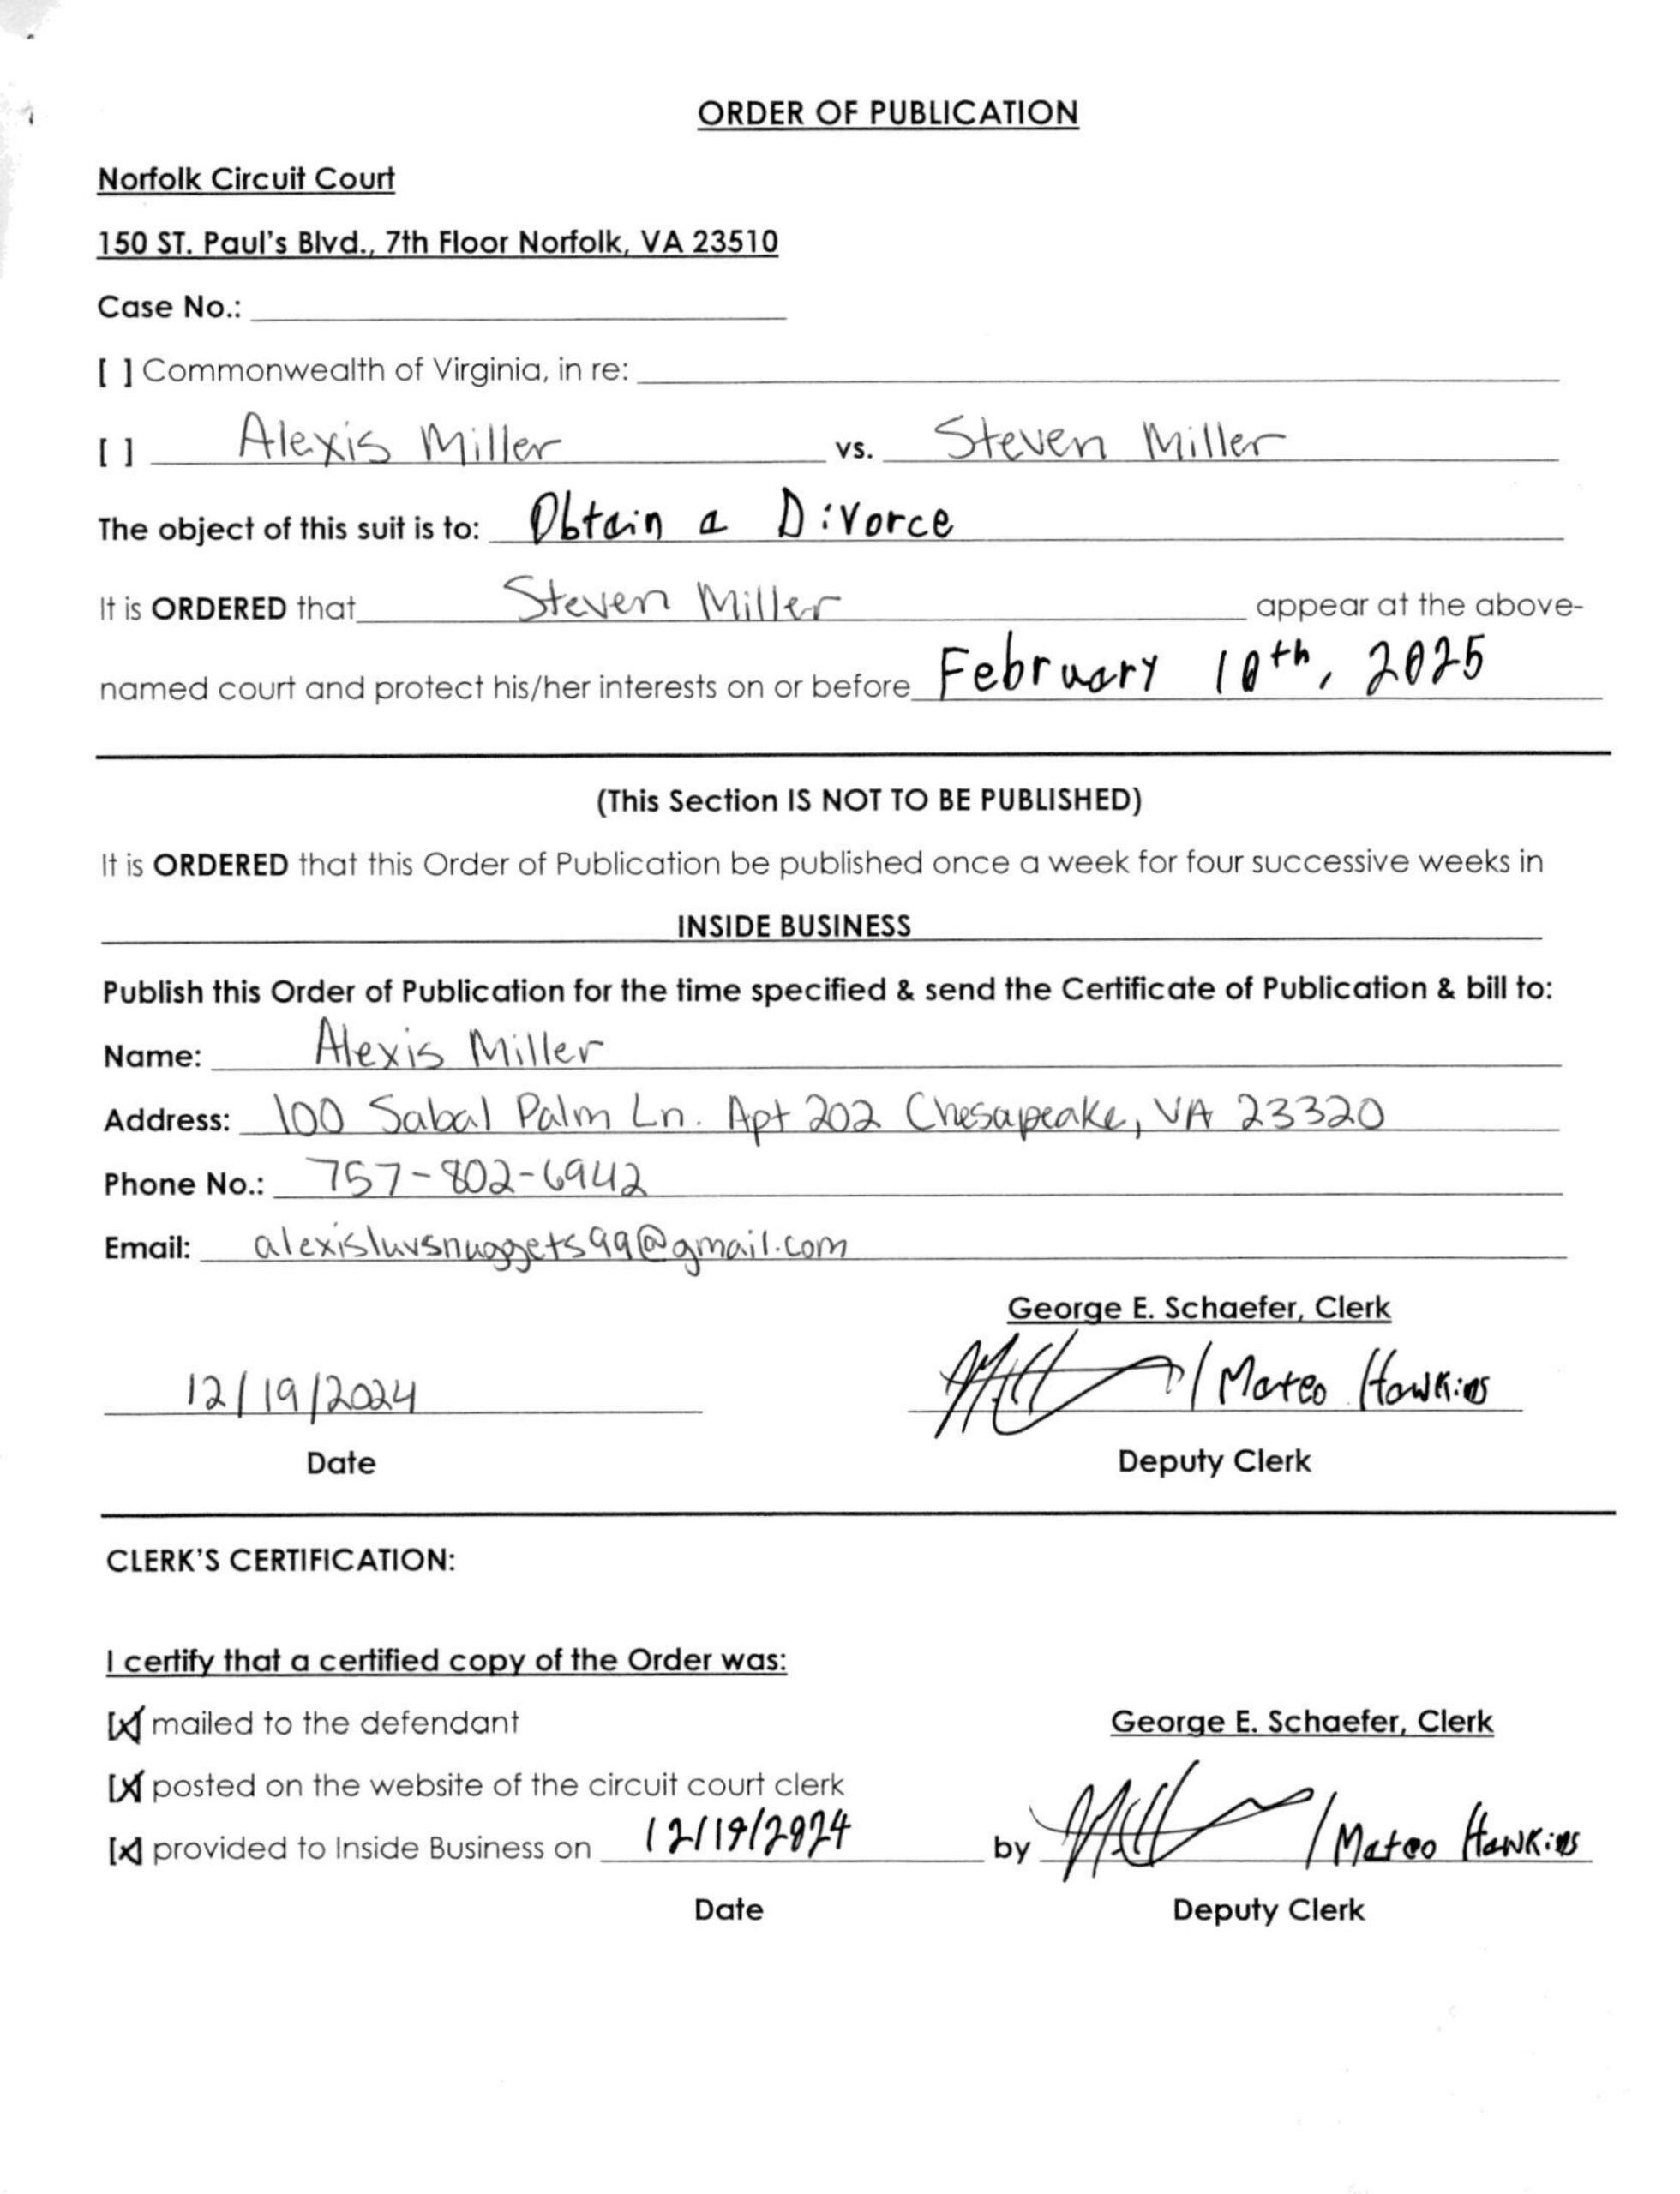 ORDER OF PUBLICATION
Norfolk Circuit Court
150 ST. Paul's Blvd., 7th Floor Norfolk, VA 23510
Case No.:
[ ] Commonwealth of Virginia, in re:
[ ] Alexis Miller vs. Steven Miller
The object of this suit is to: Obtain a Divorce
It is ORDERED that Steven Miller appear at the above-
named court and protect his/her interests on or before February 10th, 2025
(This Section IS NOT TO BE PUBLISHED)
It is ORDERED that this Order of Publication be published once a week for four successive weeks in
INSIDE BUSINESS
Publish this Order of Publication for the time specified & send the Certificate of Publication & bill to:
Name: Alexis Miller
Address: 100 Sabal Palm Ln. Apt 202 Chesapeake, VA 23320
Phone No.: 757-802-6942
Email: alexisluvsnuggets99@gmail.com
George E. Schaefer, Clerk
12/19/2024 / Mateo Hawkins
Date Deputy Clerk
CLERK'S CERTIFICATION:
I certify that a certified copy of the Order was:
[x] mailed to the defendant George E. Schaefer, Clerk
[x] posted on the website of the circuit court clerk
[x] provided to Inside Business on 12/19/2024 by / Mateo Hawkins
Date Deputy Clerk